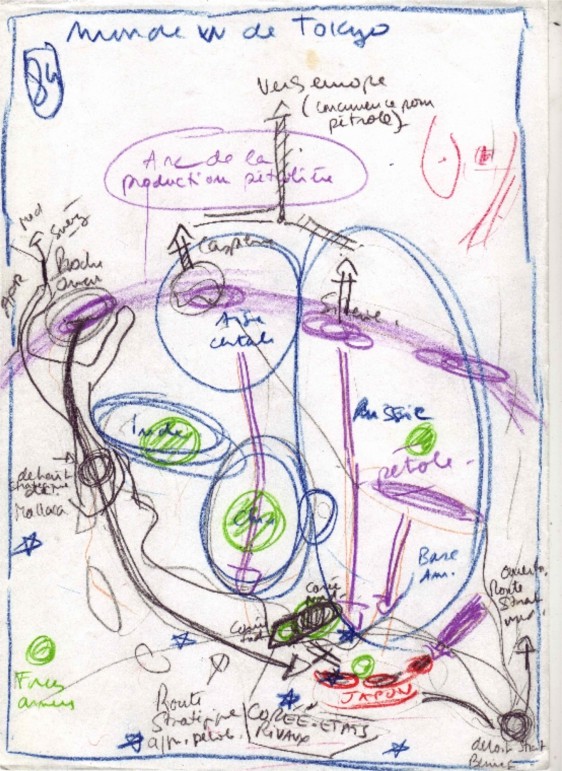 monde vu de Tokyo
84
Vers europe
(concurrence pour
pétrole)
Arc de la
production pétrolière
Suez
Proche
orient
Caspienne
Asie
centrale
Sibérie
Russie
pétrole
Inde
Chine
détroit
stratégique
de
Mallaca
Base
Am.
Corée
Nord
Corée
sud
JAPON
Forces
armées
Route
Stratégique
app. pétrole
CORÉE-ETATS
RIVAUX
Route
détroit
Béring